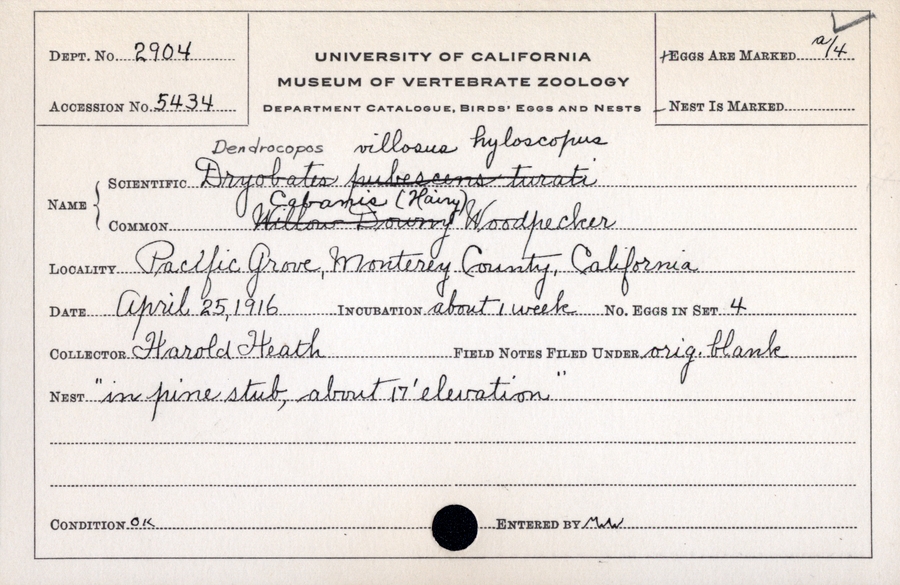 DEPT. No. 2904
ACCESSION No. 5434
UNIVERSITY OF CALIFORNIA
MUSEUM OF VERTEBRATE ZOOLOGY
DEPARTMENT CATALOGUE, BIRDS' EGGS AND NESTS
EGGS ARE MARKED a/4
NEST IS MARKED
Dendrocopos villosus hyloscopus
NAME
SCIENTIFIC Dryobates pubescens turati
Cabanis (Hairy)
COMMON Willow Downy Woodpecker
LOCALITY Pacific Grove, Monterey County, California
DATE April 25, 1916 INCUBATION about 1 week No. EGGS IN SET 4
COLLECTOR Harold Heath FIELD NOTES FILED UNDER orig. blank
NEST "in pine stub, about 17' elevation"
CONDITION OK ENTERED BY